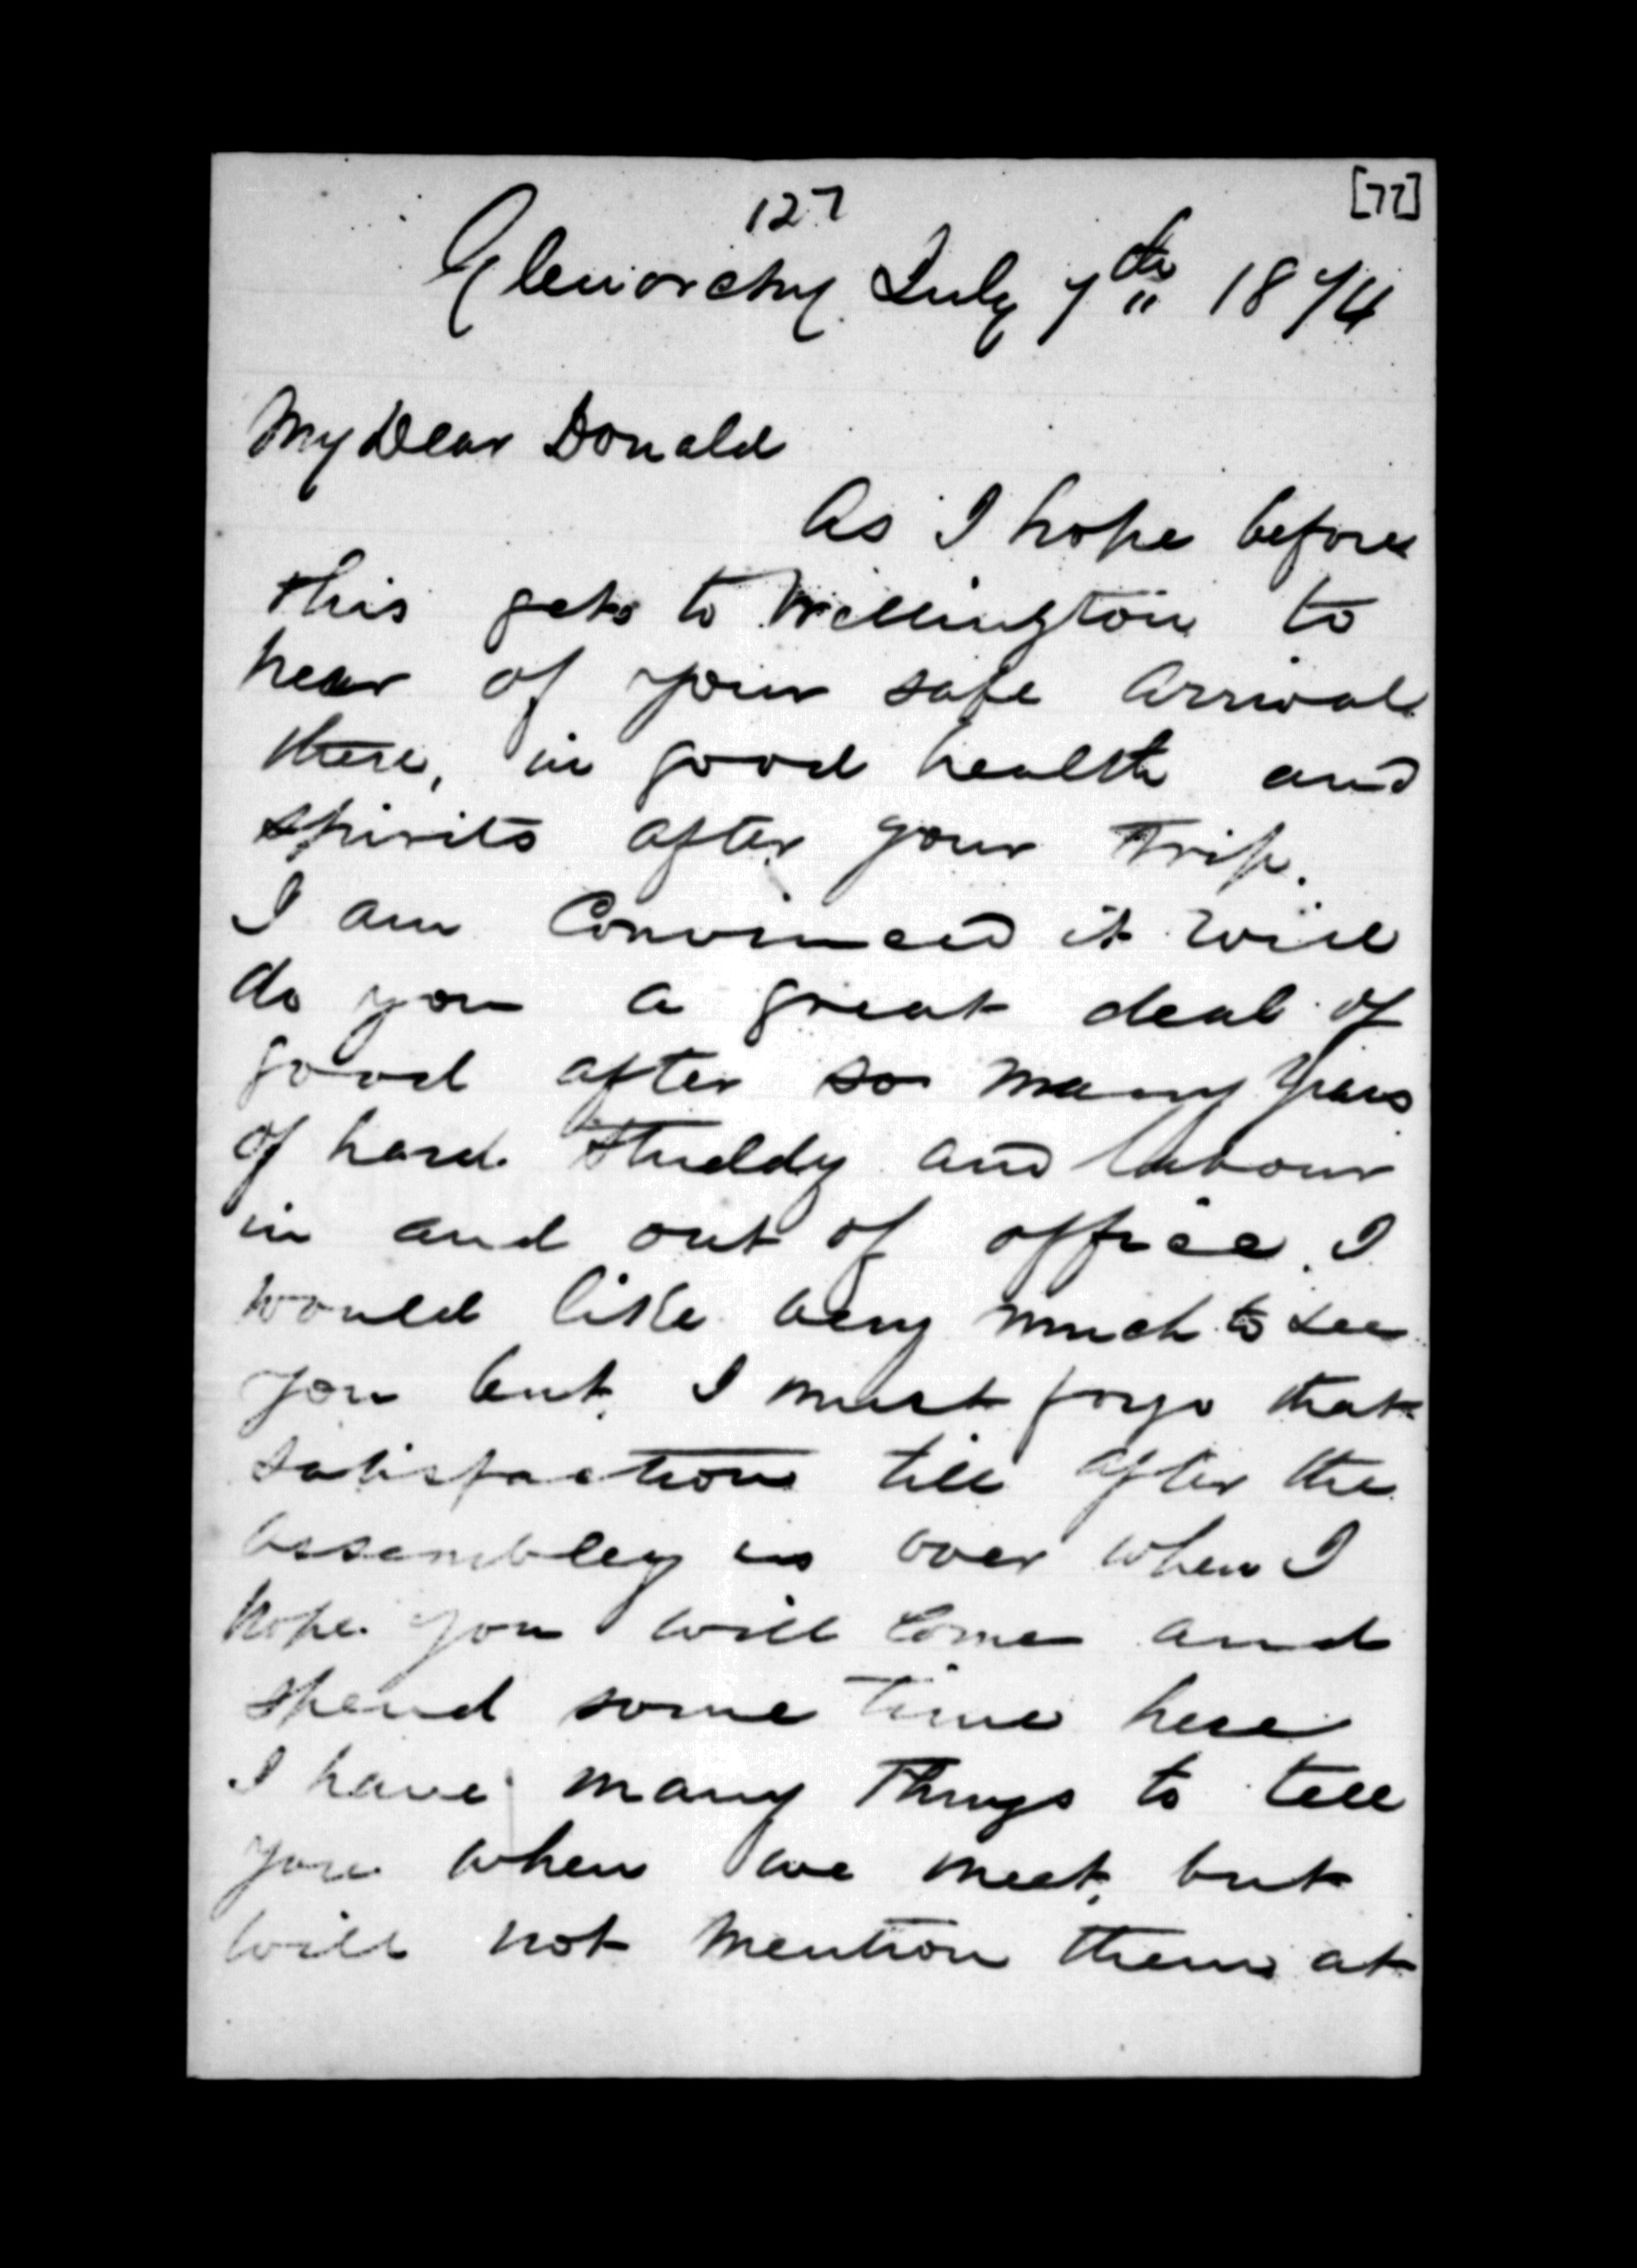 127
[77]
Glenorchy July 7th 1874
My Dear Donald
As I hope before
this gets to Wellington to
hear of your safe arrival
there, in good health and
spirits after your Trip.
I am Convinced it will
do you a great deal of
good after so many years
of hard studdy and labour
in and out of office. I
would like very much to see
you but, I must forgo that
satisfaction till after the
assembley is over when I
hope you will Come and
spend some time here
I have many Things to tell
you when we meet, but
will not mention them at